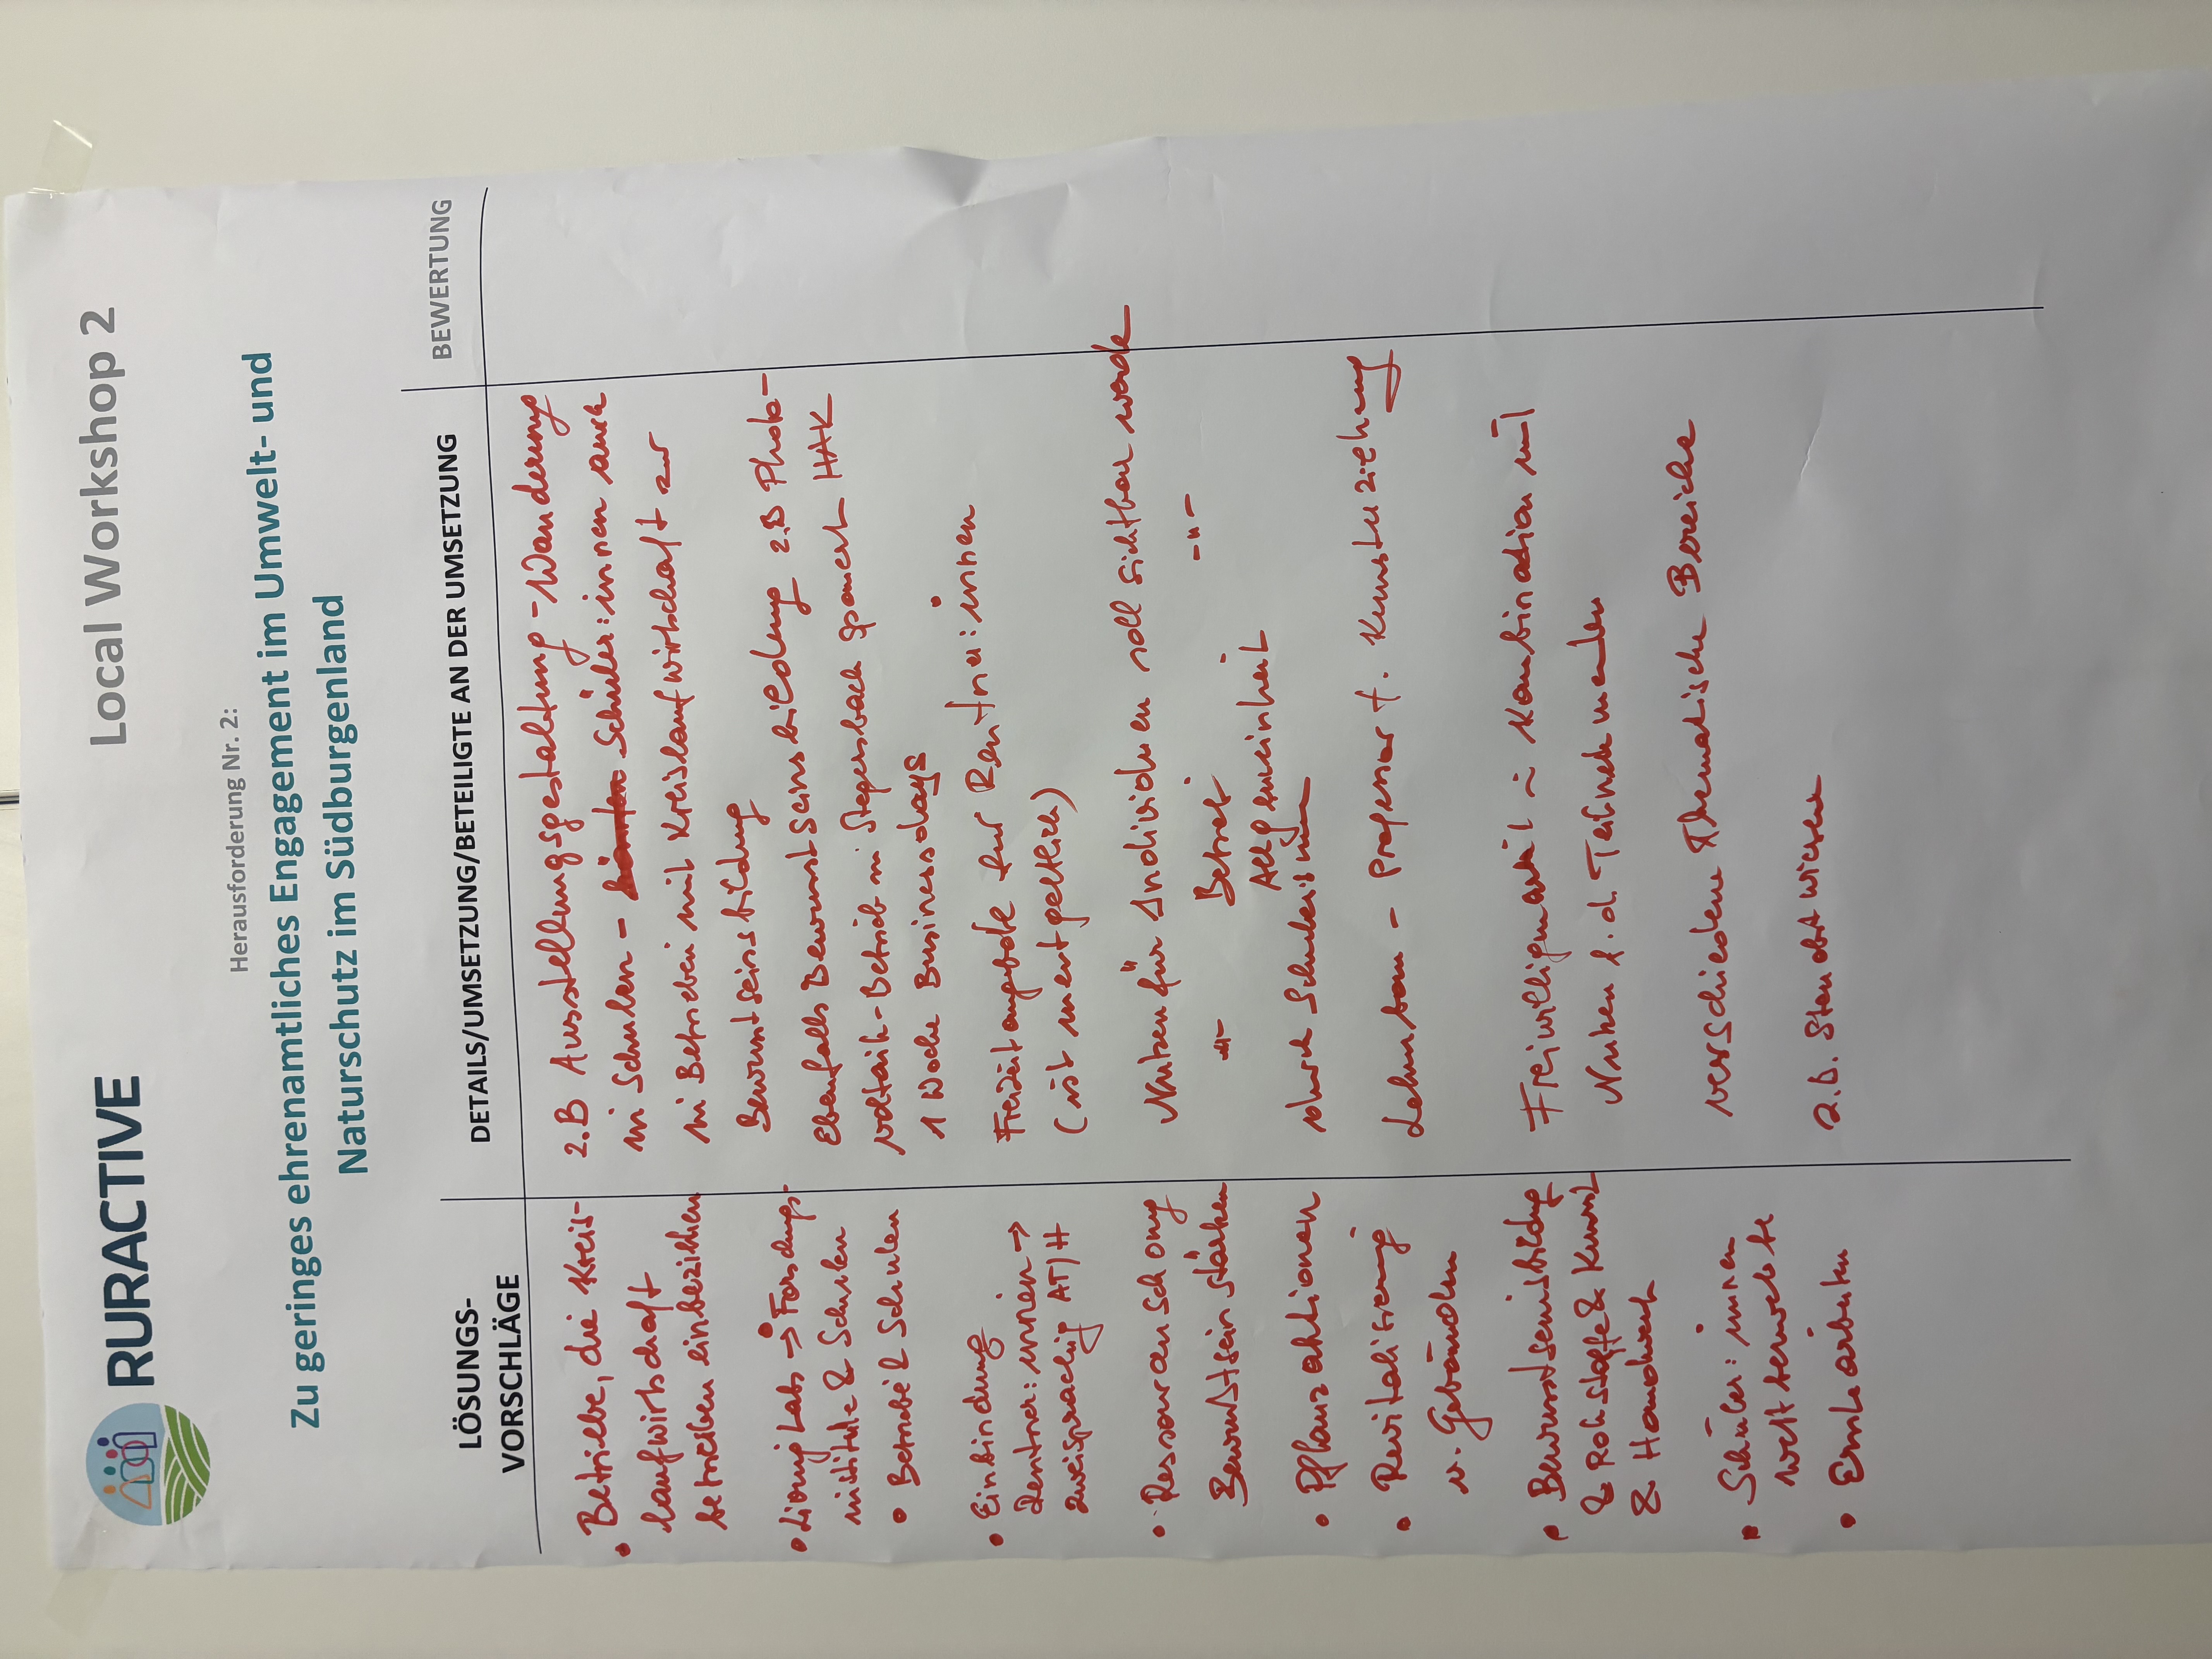 RURACTIVE
Local Workshop 2
Herausforderung Nr. 2:
Zu geringes ehrenamtliches Engagement im Umwelt- und
Naturschutz im Südburgenland
LÖSUNGS-
VORSCHLÄGE
DETAILS/UMSETZUNG/BETEILIGTE AN DER UMSETZUNG
BEWERTUNG
• Betriebe, die Kreis-
laufwirtschaft
betreiben einbeziehen
z.B Ausstellungsgestaltung - Wanderung
in Schulen - Schüler:innen auch
in Betrieben mit Kreislaufwirtschaft zur
Bewusstseinsbildung
• Living Labs → Forschungs-
institute & Schulen
• Betriebe & Schulen
Ebenfalls Bewusstseinsbildung z.B Photo-
voltaik-Betrieb in Stegersbach HAK
1 Woche Businessdays
• Einbindung
Rentner:innen →
zweisprachig AT/H
Freizeitangebote für Rentner:innen
(nicht unentgeltlich)
• Ressourcenschonung
Bewusstsein stärken
Nutzen für Individuen soll sichtbar werde
-"- Betrieb -"-
Allgemeinheit
• Pflanzaktionen
durch Schuleinheiten
• Revitalisierung
v. Gebäuden
Lehmbau - Professor f. Kunstuziehung
• Bewusstseinsbildung
& Rohstoffe & Kunst
& Handwerk
Freiwilligenarbeit in Kombination mit
Nutzen f. d. Teilnehmenden
• Schüler:innen
wettbewerbe
verschiedene Thematische Bereiche
• Ernte arbeiten
z.B. Streuobstwiesen